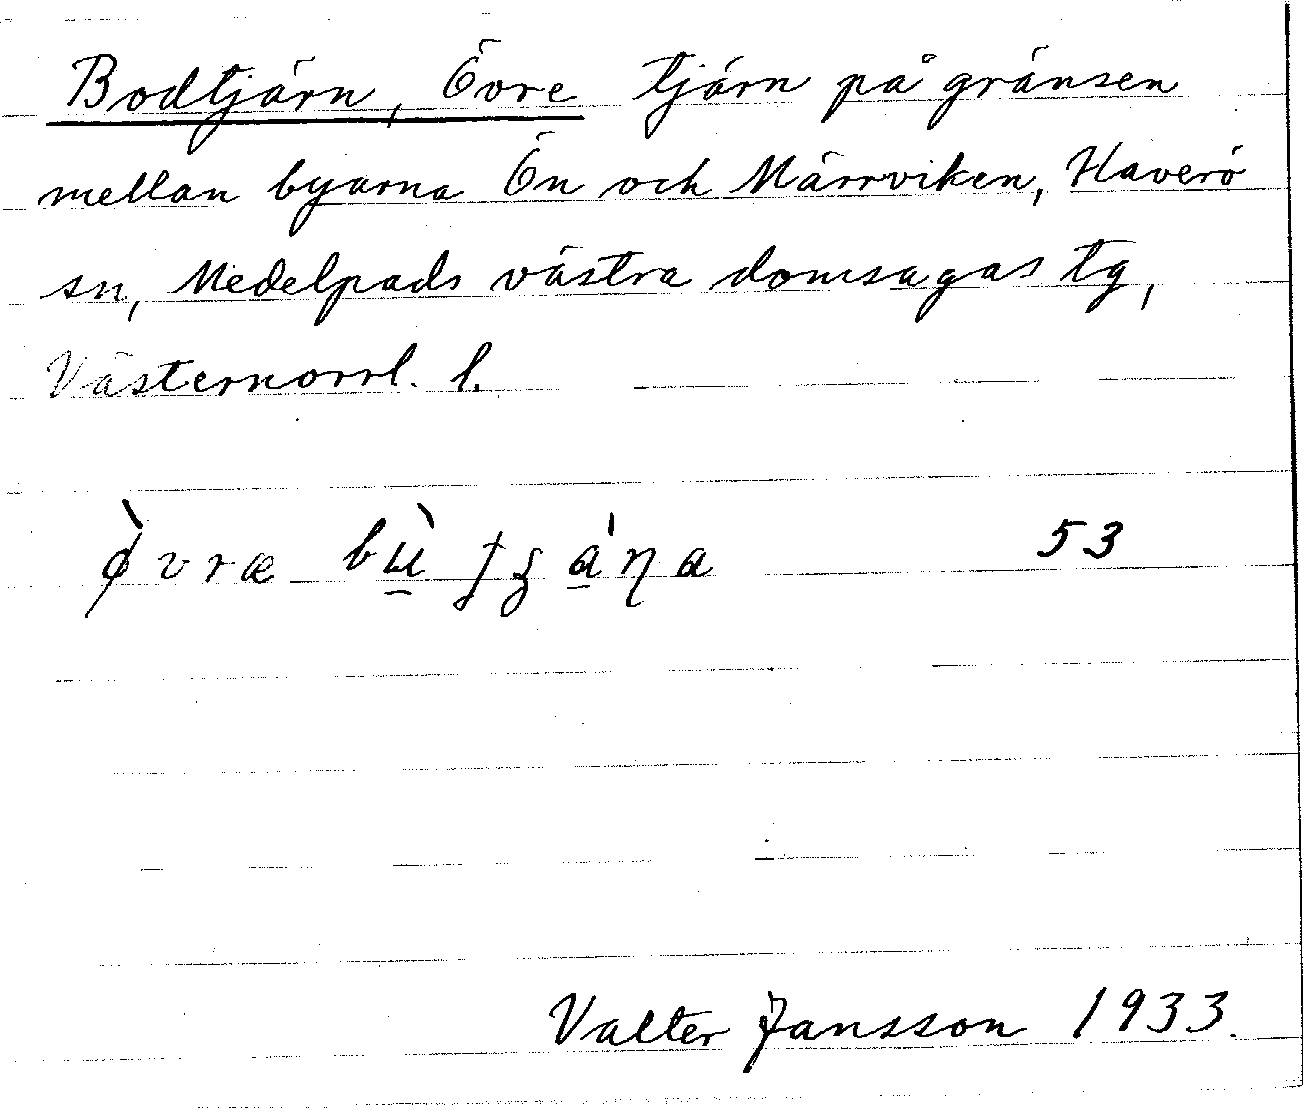 Bodtjärn, Övre tjärn på gränsen
mellan byarna Ön och Märrviken, Haverö
sn, Medelpads västra domsagas tg,
Västernorrl. l.
ø̀vræ bù̠ ʄʒá̠ƞa 53
Valter Jansson 1933.